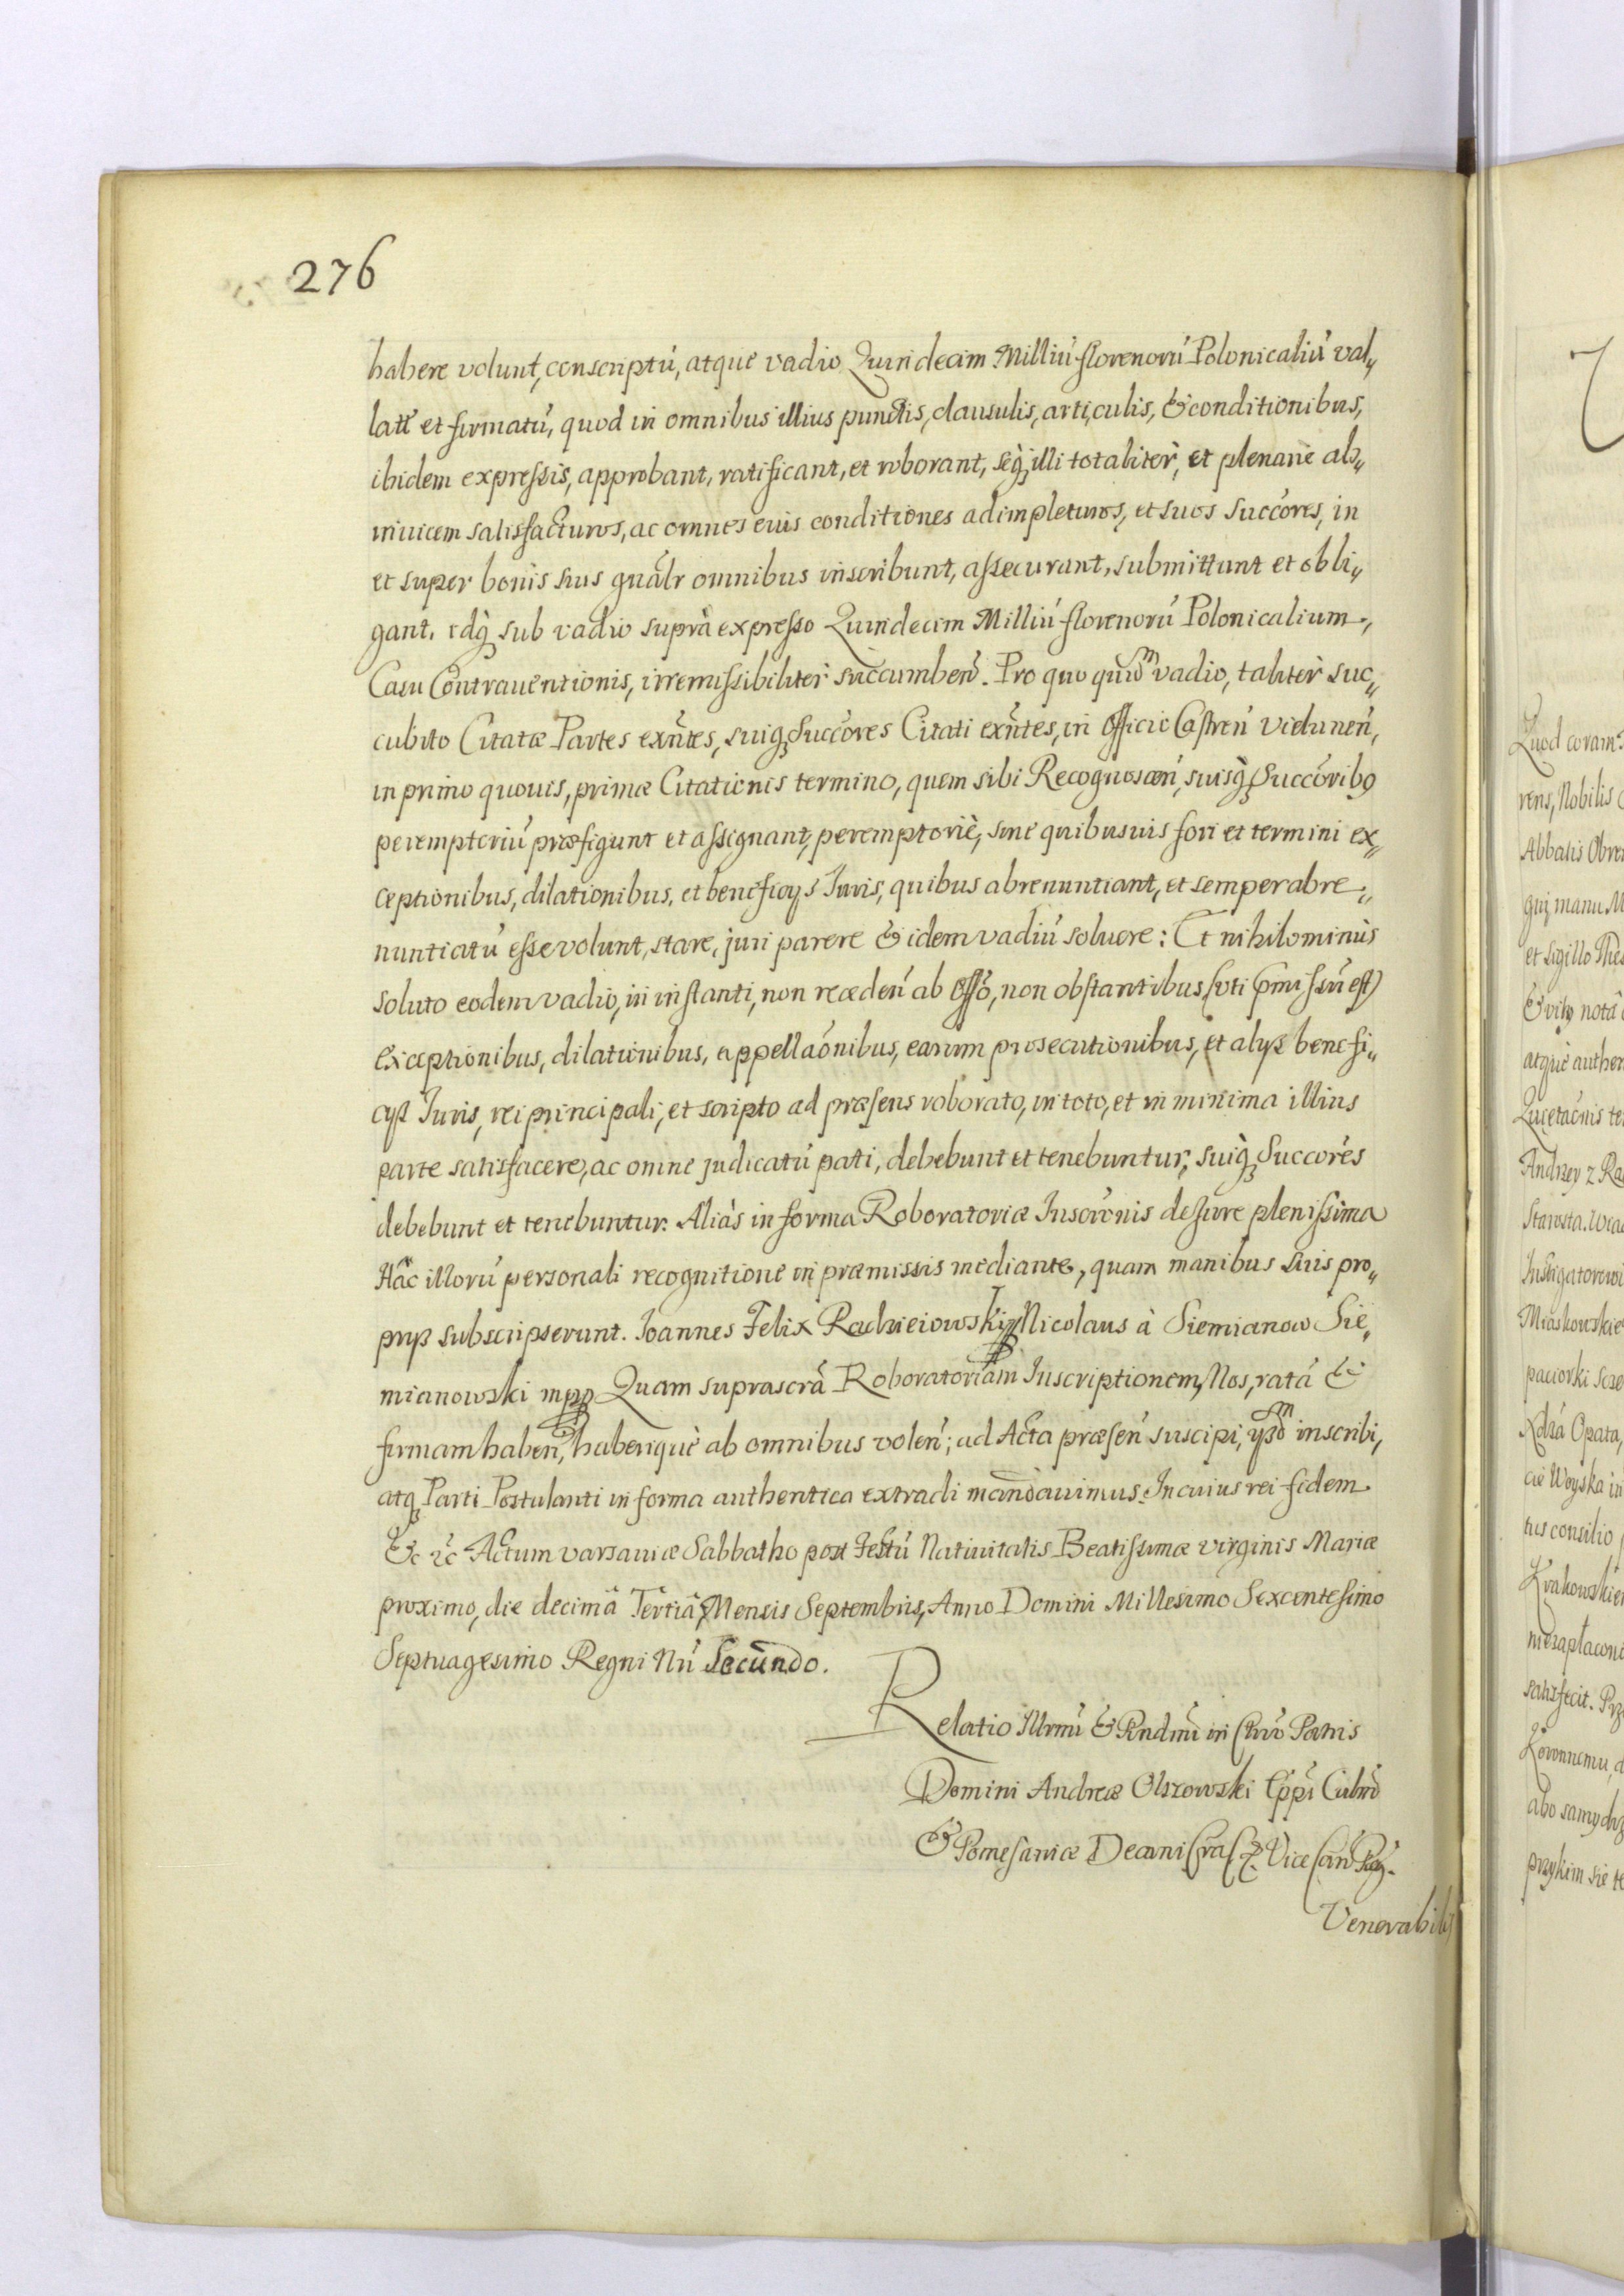 276
habere volunt, conscriptú, atque vadio Quindecim Milliú florenorú Polonicaliú val„
latt et firmatú, quod in omnibus illius punctis, clausulis, articulis, & conditionibus,
ibidem expressis, approbant, ratificant, et roborant, seq₃ illi totalitèr, et plenariè ab„
inuicem satisfacturos, ac omnes euis conditiones adimpleturos, et suos Succõres, in
et super bonis suis gnãlr omnibus inscribunt, assecurant, submittunt et obli„
gant. idq₃ sub vadio suprà expresso Quindecim Milliú florenorú Polonicalium,
Casu Contrauentionis, irremissibilitèr succumbeñ. Pro quo quidm vadio, talitèr suc„
cubito Citatæ Partes exñtes, suiq₃ Succõres Citati exñtes, in Officio Castreñ Vieluneñ,
in primo quouis, primæ Citationis termino, quem sibi Recognosceñ, suisq₃ Succõribꝯ
peremptoriú præfigunt et assignant, peremptoriè, sine quibusuis fori et termini ex„
ceptionibus, dilationibus, et beneficijs Iuris, quibus abrenuntiant, et semper abre„
nuntiatú esse volunt, stare, juri parere & idem vadiú soluere: Et nihilominùs
soluto eodem vadio, in instanti, non recedeñ ab Offõ, non obstantibus (uti p̃missũ est)
exceptionibus, dilationibus, appellaõnibus, earum prosecutionibus, et alijs benefi„
cijs Iuris, rei principali, et scripto ad præsens roborato, in toto, et in minima illius
parte satisfacere, ac omne judicatú pati, debebunt et tenebuntur, suiq₃ Succõres
debebunt et tenebuntur. Aliàs in forma Roboratoriæ Inscrõnis de Iure plenissima
Hâc illorú personali recognitione in præmissis mediante, quam manibus suis pro„
prijs subscripserunt. Ioannes Felix Radzieiowski Nicolaus à Siemianow Sie„
mianowski mpp Quam suprascrã Roboratoriam Inscriptionem, Nos, ratá &
firmam habeñ, haberiquè ab omnibus voleñ; ad Acta præseñ suscipi, ijsdm inscribi,
atq₃ Parti Postulanti in forma authentica extradi mandauimus. In cuius rei fidem
&c ꝛc Actum Varsauiæ Sabbatho post Festú Natiuitatis Beatissimæ Virginis Mariæ
proximo, die decimâ Tertiâ, Mensis Septembris, Anno Domini Millesimo Sexcentesimo
Septuagesimo Regni Nrĩ Secundo.
Relatio Illrmi & Rndmi in Chrõ Patris
Domini Andreæ Olszowski Eppi Culmñ
& Pomesaniæ Decani Vice
Venerabilis
Quod coram
rens, Nobilis
Abbatis
qui manu
et sigillo
nota
atque
Andrzey z
Starosta
Instigatorowi
Opata,
Woyska
tus consilio
satisfecit.
Koronnemu,
abo